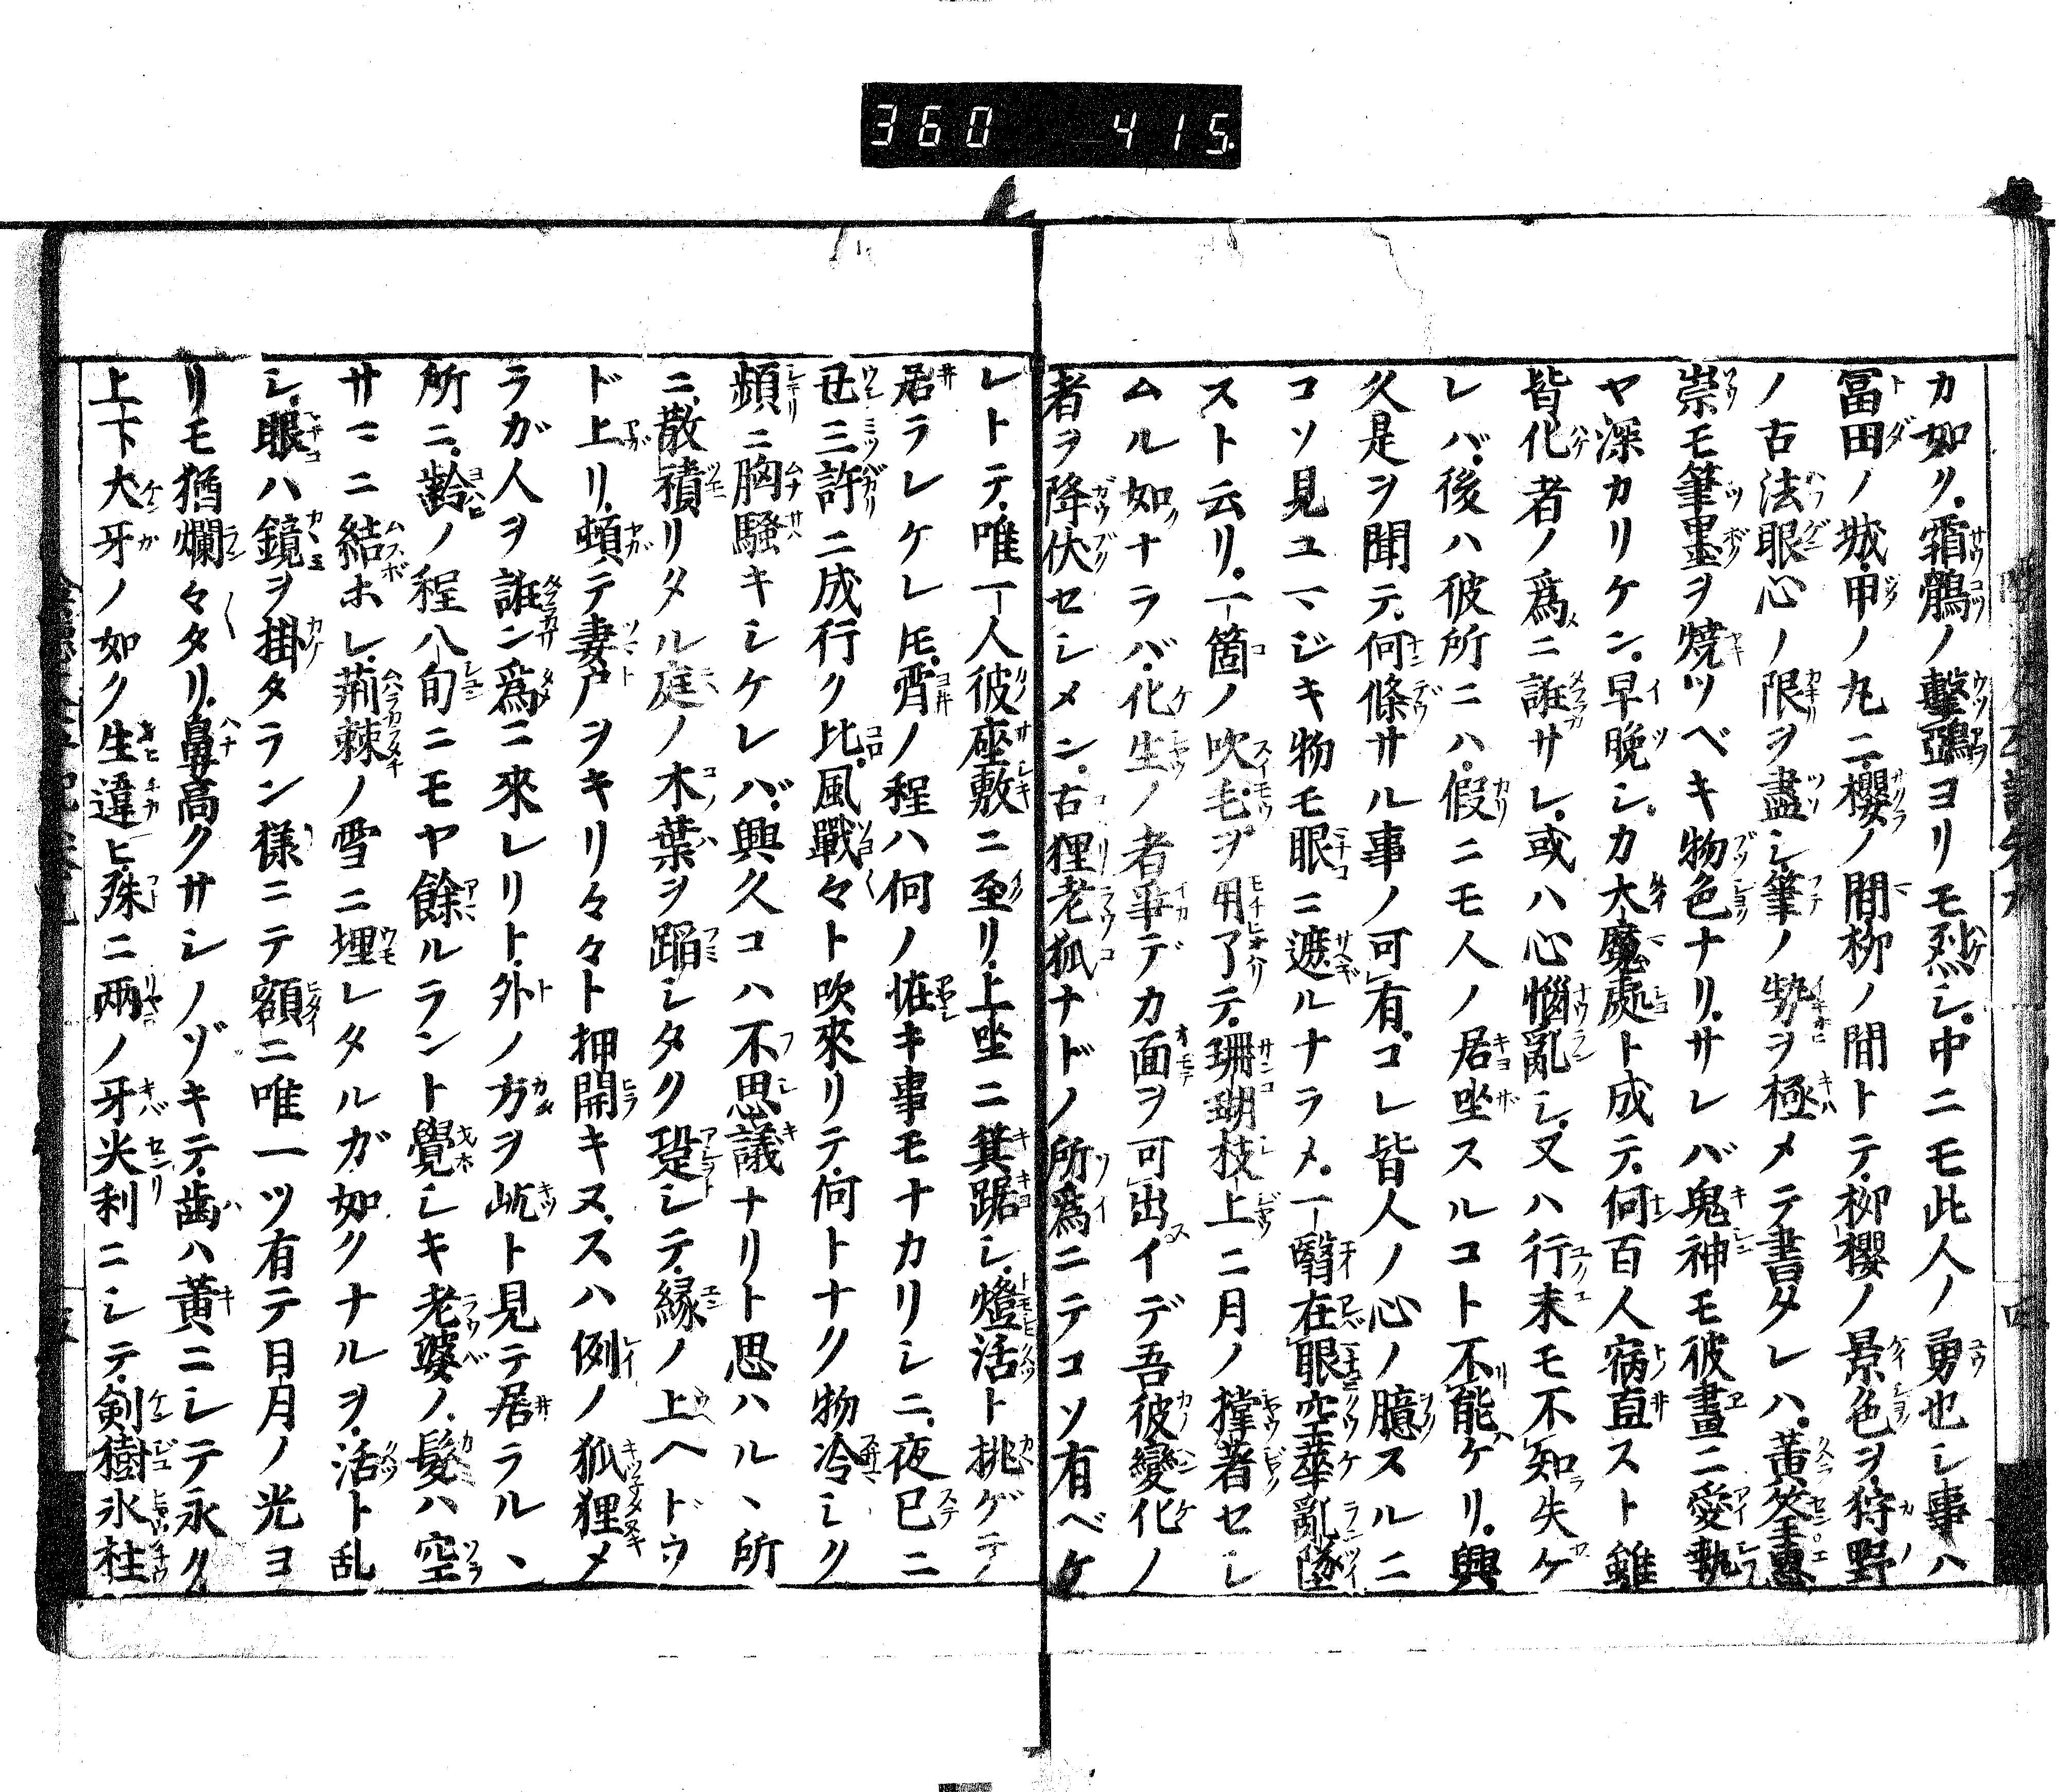 360 415
カ如ク霜鶻ノ擊鵶ヨリモ烈シ中ニモ此人ノ勇也シ事ハ
冨田ノ城甲ノ丸ニ櫻ノ間柳ノ間トテ柳櫻ノ景色ヲ狩野
ノ古法眼心ノ限ヲ盡シ筆ノ勢ヲ極メテ書タレハ黄筌
崇モ筆墨ヲ焼ツベキ物色ナリサレバ鬼神モ彼畫ニ愛執
ヤ深カリケン早晩シカ大魔處ト成テ何百人病直スト雖
皆化者ノ爲ニ誑サレ或ハ心惱亂シ又ハ行末モ不知失ケ
レバ後ハ彼所ニハ假ニモ人ノ居坐スルコト不能ケリ興
久是ヲ聞テ何條サル事ノ可有コレ皆人ノ心ノ臆スルニ
コソ見ユマジキ物モ眼ニ遮ルナラメ一翳在眼空華亂墜
スト云リ一箇ノ吹毛ヲ用了テ珊瑚枝上ニ月ノ撑著セシ
ムル如ナラバ化生ノ者爭デカ面ヲ可出イデ吾彼變化ノ
者ヲ降伏セシメン古狸老狐ナドノ所爲ニテコソ有ベケ
レトテ唯一人彼座敷ニ至リ上坐ニ箕踞シ燈活ト挑ゲテ
居ラレケレ圧霄ノ程ハ何ノ恠キ事モナカリシニ夜已ニ
丑三許ニ成行ク比風戰々ト吹來リテ何トナク物冷シク
頻ニ胸騒キシケレバ興久コハ不思議ナリト思ハルヽ所
ニ散積リタル庭ノ木葉ヲ蹈シタク跫シテ縁ノ上ヘドウ
ド上リ頓テ妻戸ヲキリ々々ト押開キヌスハ例ノ狐狸メ
ラガ人ヲ誑ン爲ニ來レリト外ノ方ヲ屹ト見テ居ラルヽ
所ニ齢ノ程八旬ニモヤ餘ルラント覺シキ老婆ノ髮ハ空
サマニ結ホレ荊棘ノ雪ニ埋レタルガ如クナルヲ活ト乱
シ眼ハ鏡ヲ掛タラン様ニテ額ニ唯一ツ有テ日月ノ光ヨ
リモ猶爛々タリ鼻高クサシノゾキテ歯ハ黄ニシテ永ク
上下犬牙ノ如ク生違ヒ殊ニ兩ノ牙尖利ニシテ剣樹氷柱